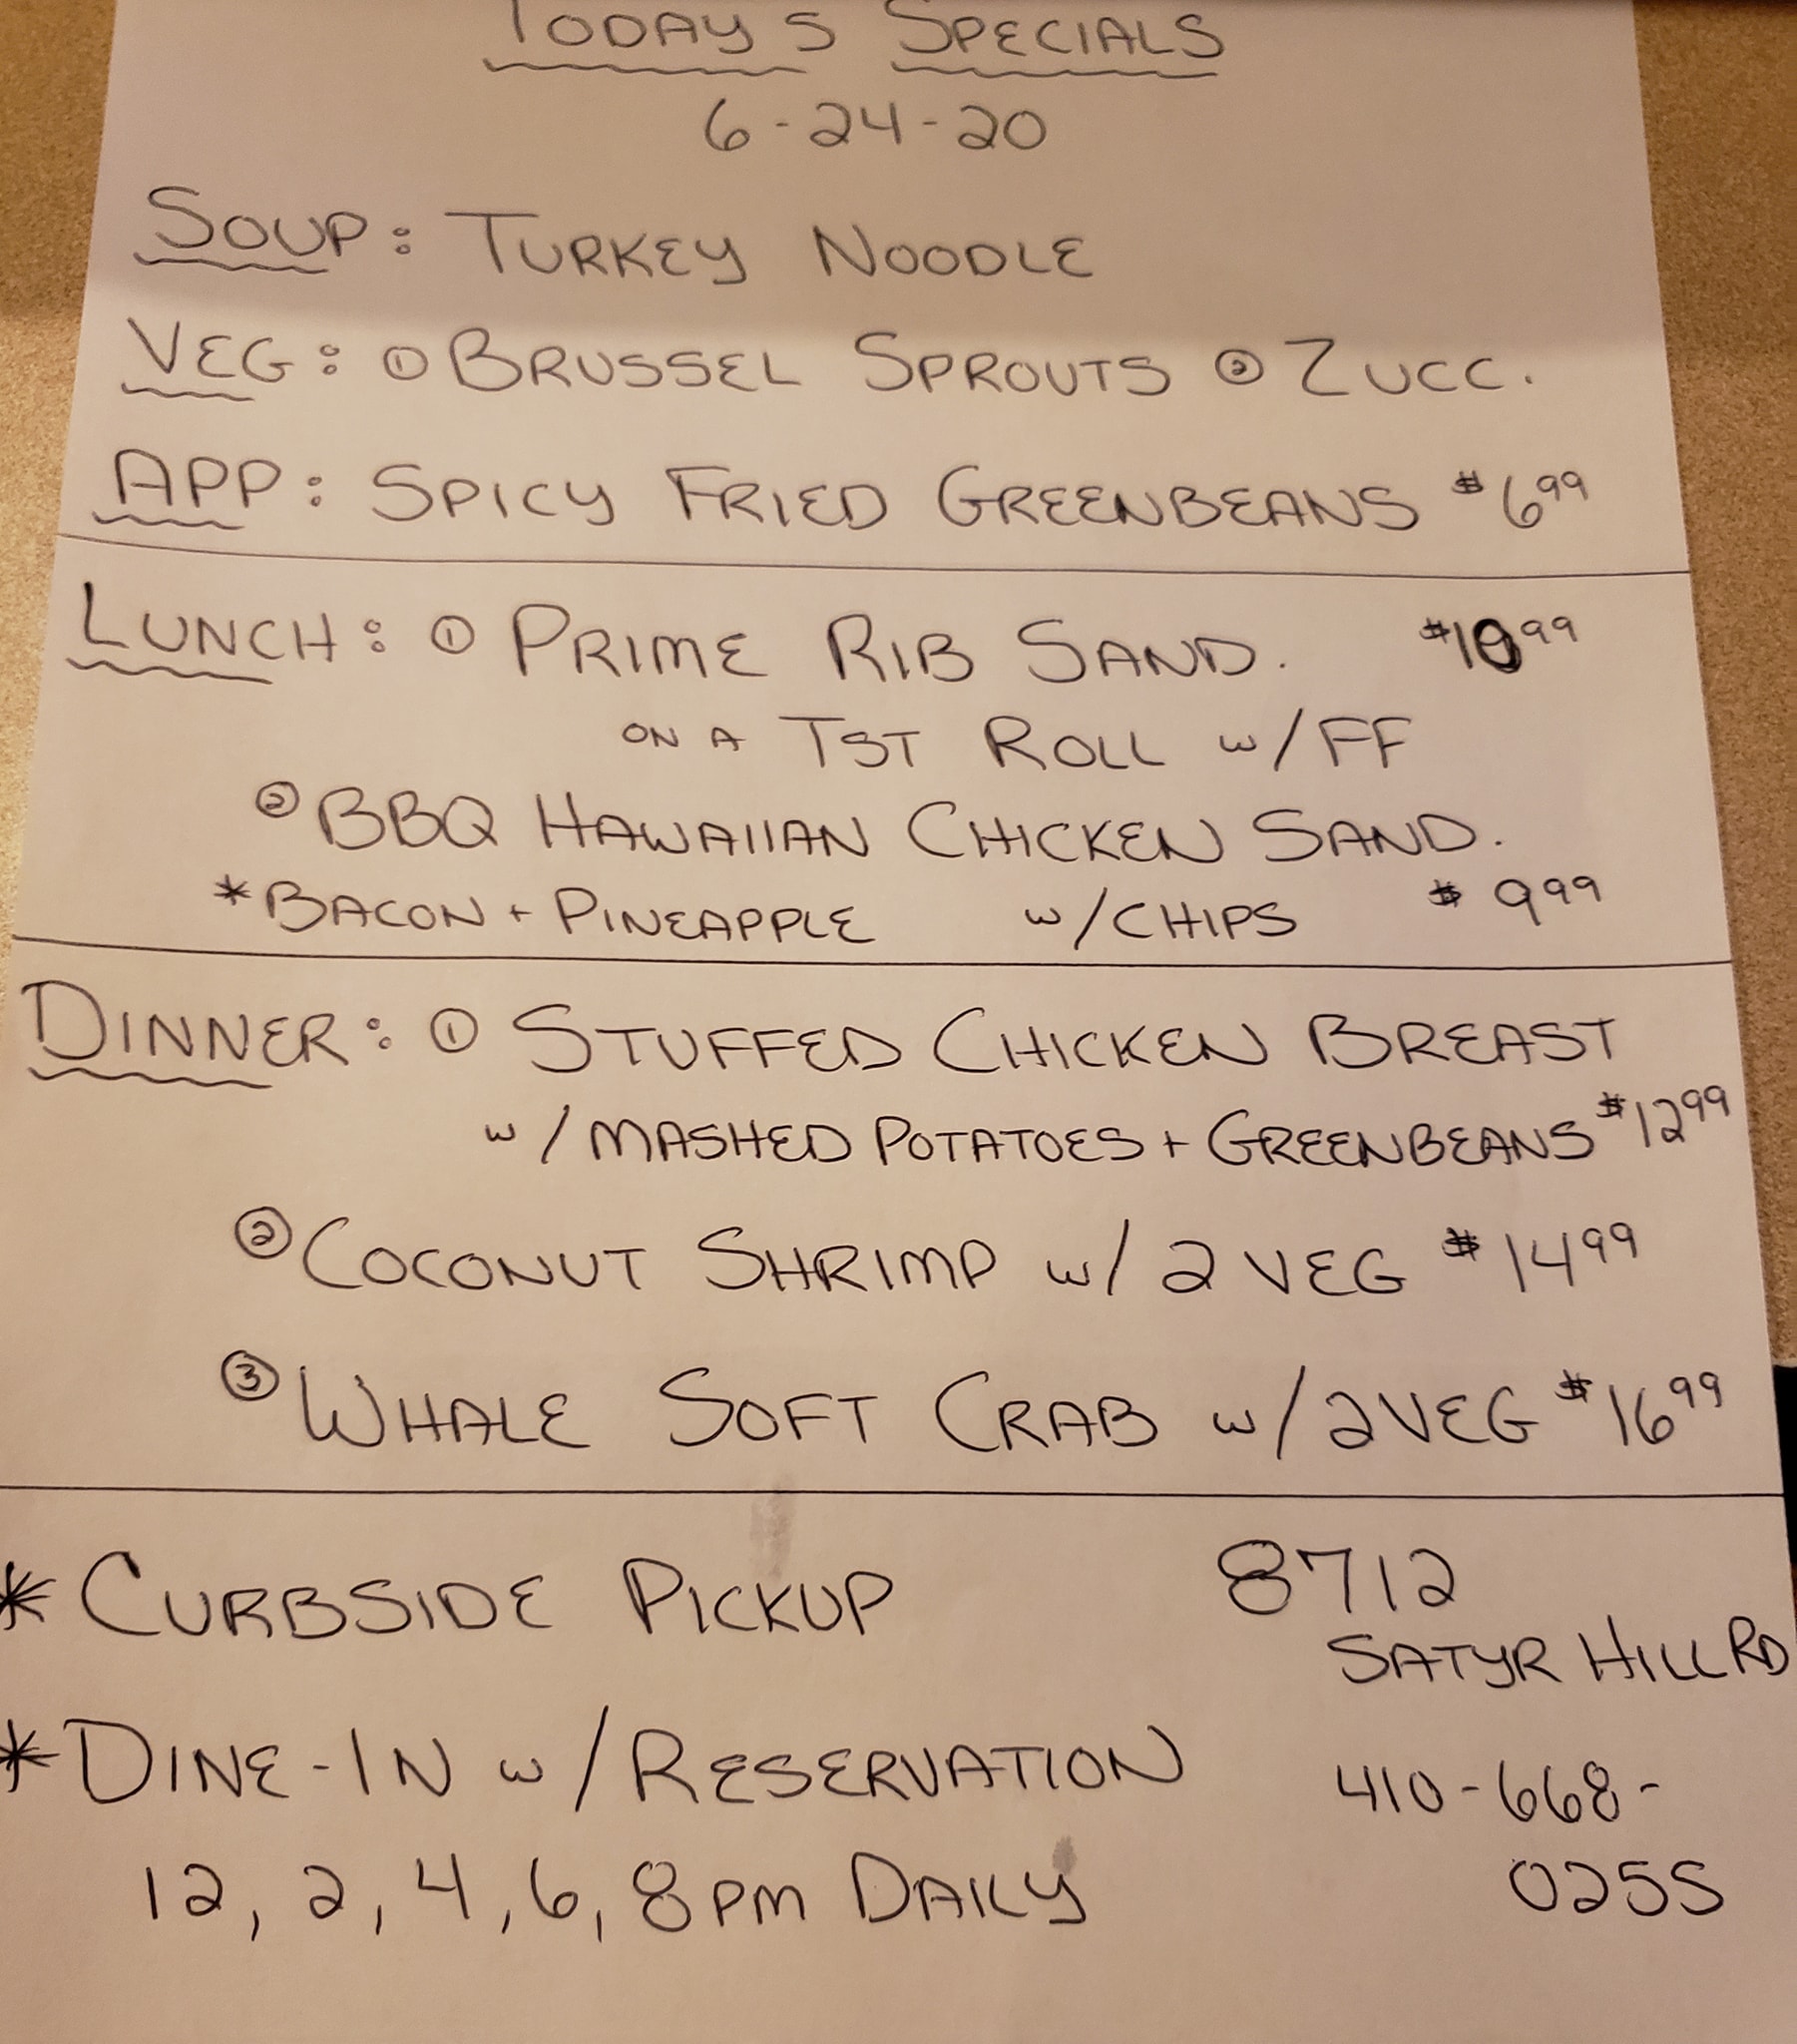 TODAY'S SPECIALS
6-24-20
SOUP: TURKEY NOODLE
VEG: ① BRUSSEL SPROUTS ② ZUCC.
APP: SPICY FRIED GREENBEANS $6.99
LUNCH: ① PRIME RIB SAND. $10.99
ON A TST ROLL w/FF
② BBQ HAWAIIAN CHICKEN SAND.
*BACON + PINEAPPLE w/CHIPS $9.99
DINNER: ① STUFFED CHICKEN BREAST
w/MASHED POTATOES + GREENBEANS $12.99
② COCONUT SHRIMP w/ 2 VEG $14.99
③ WHALE SOFT CRAB w/2 VEG $16.99
* CURBSIDE PICKUP 8712
SATYR HILL RD
* DINE-IN w/RESERVATION 410-668-
12, 2, 4, 6, 8PM DAILY 0255